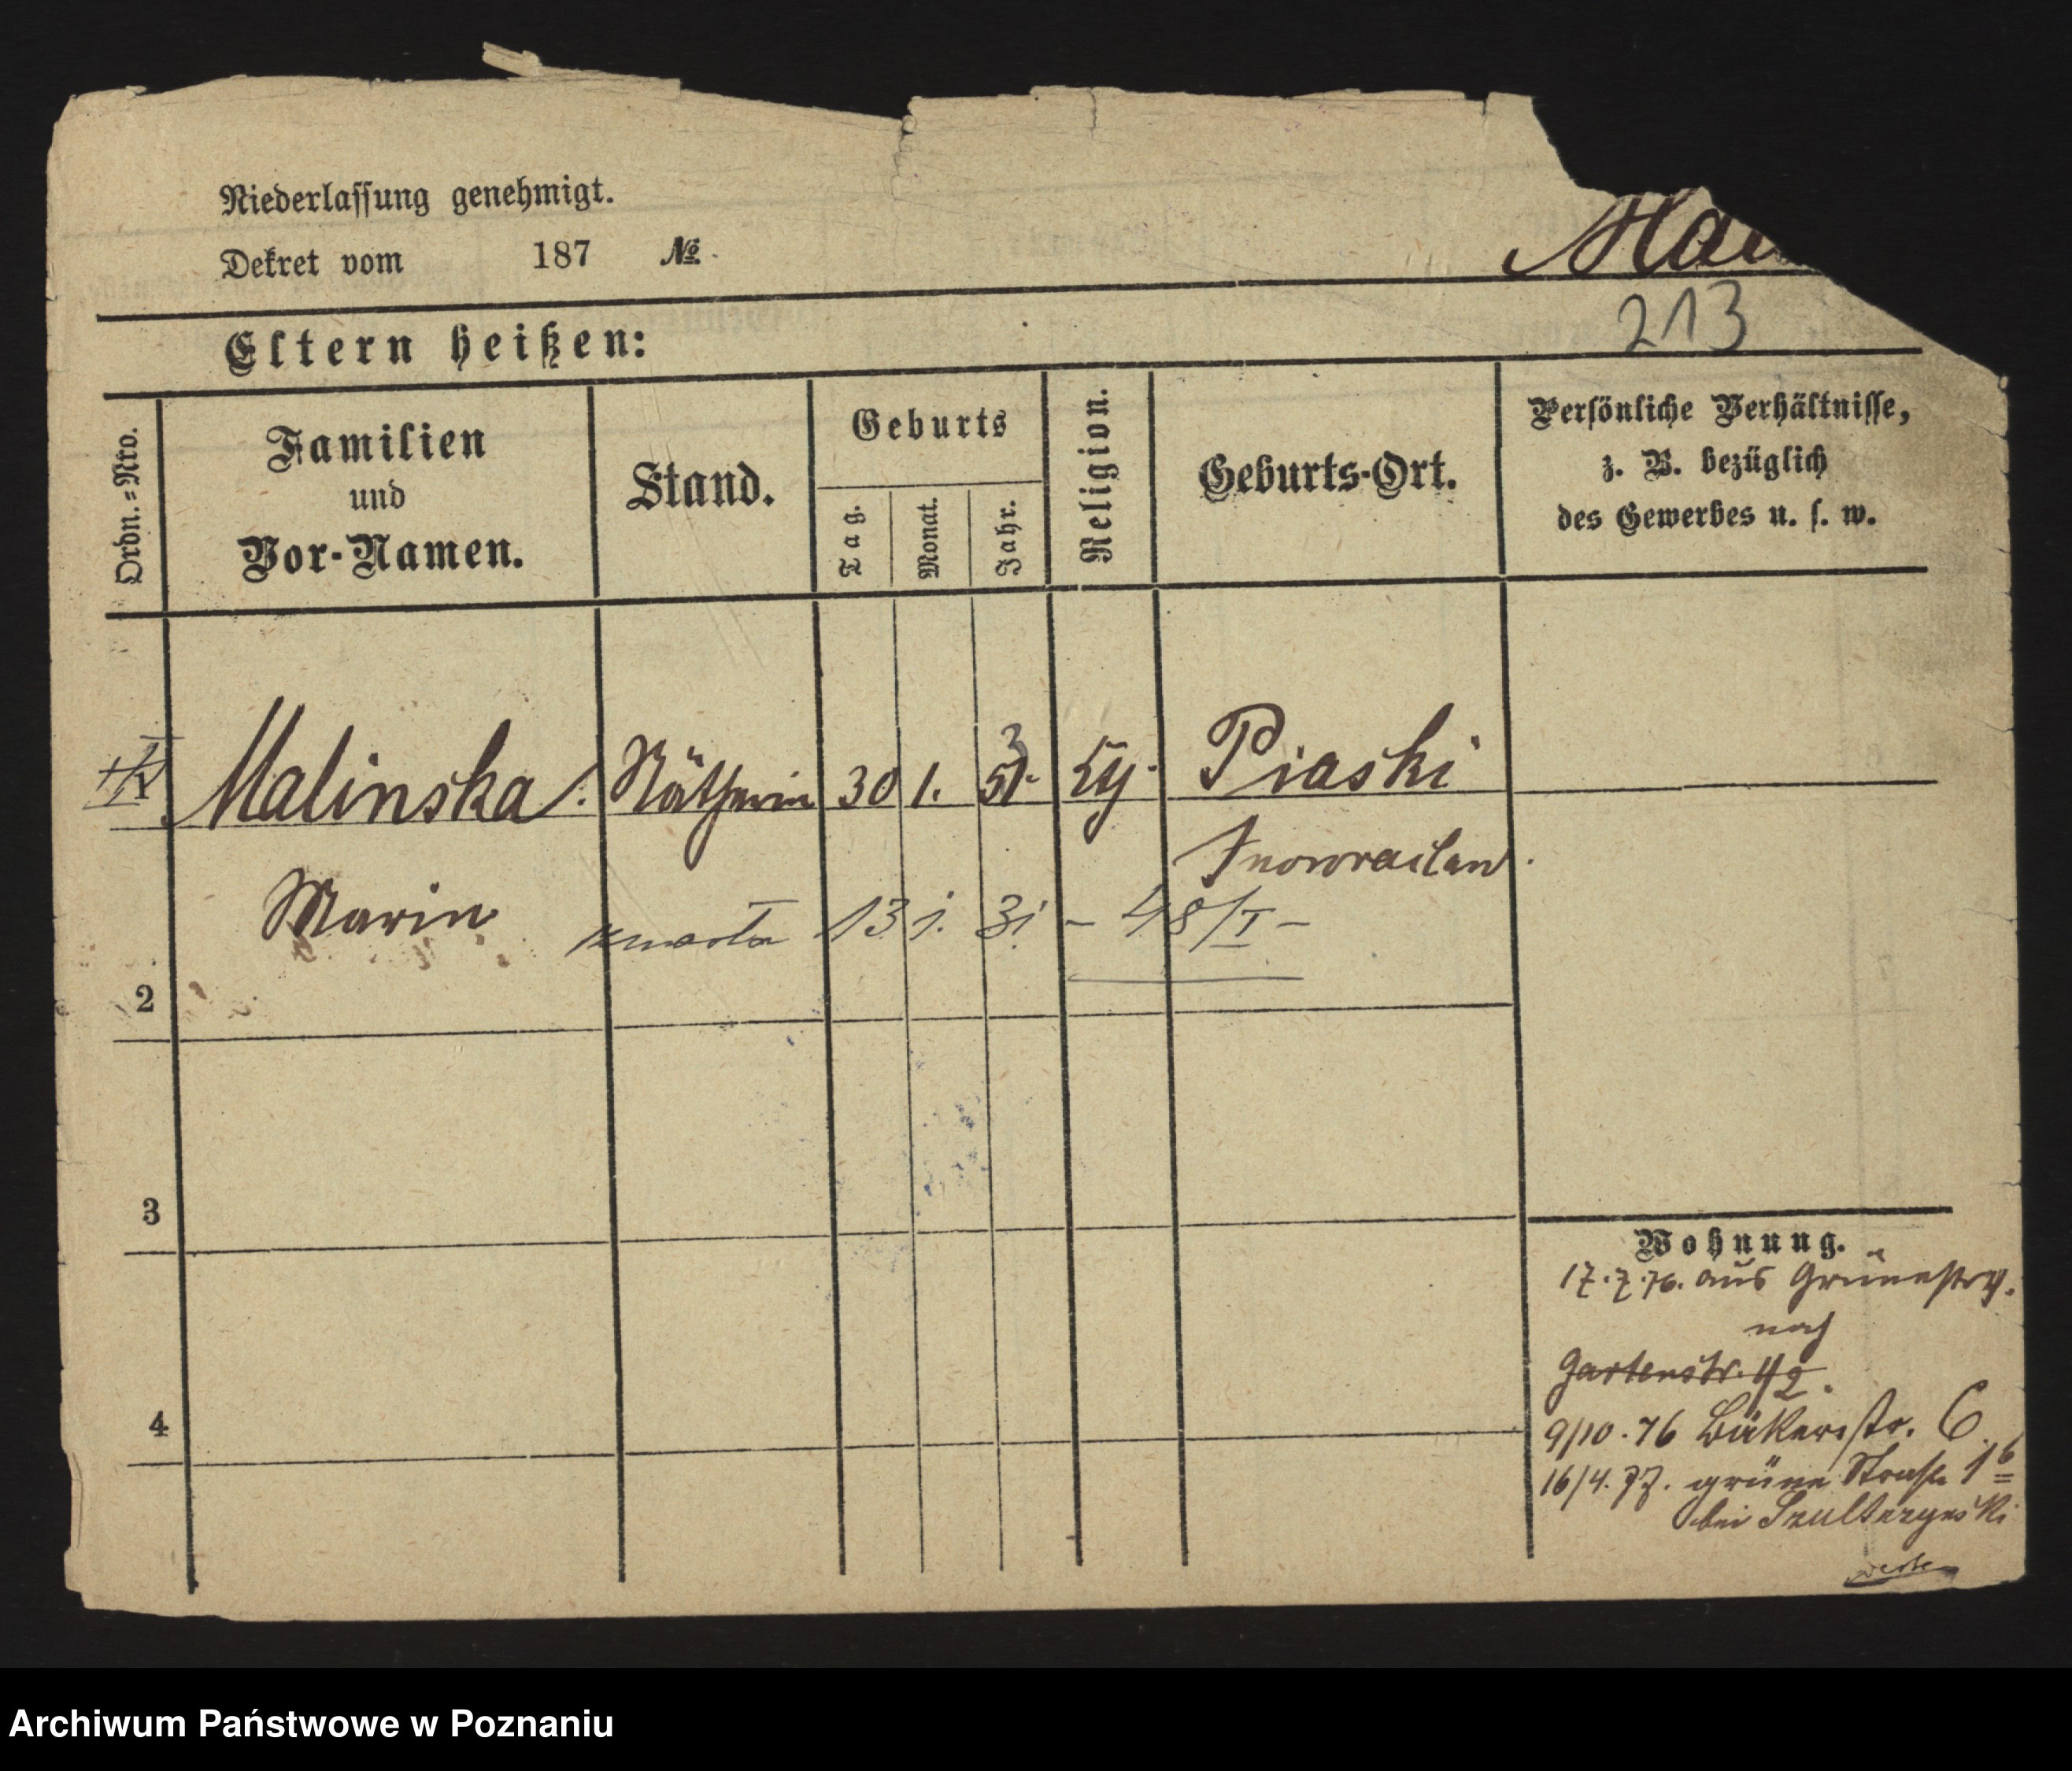 Niederlassung genehmigt.
Dekret vom 187 №
Mal
213
Eltern heißen:
Ordn.=Nro.
Familien
und
Vor-Namen.
Stand.
Geburts
Tag.
Monat.
Jahr.
Religion.
Geburts-Ort.
Persönliche Verhältnisse,
z. B. bezüglich
des Gewerbes u. s. w.
Malinska Nätherin 30 1. 51. Piaski
Inowraclaw
Marie
zmarła 13 1. 31 - 48/I -
2
3
4
Wohnung.
17.7.76. aus Grünestr.
nach
Gartenstr.
9/10.76 Bäckerstr. 6.
16/4.77. grüne Straße 1b
bei
Archiwum Państwowe w Poznaniu